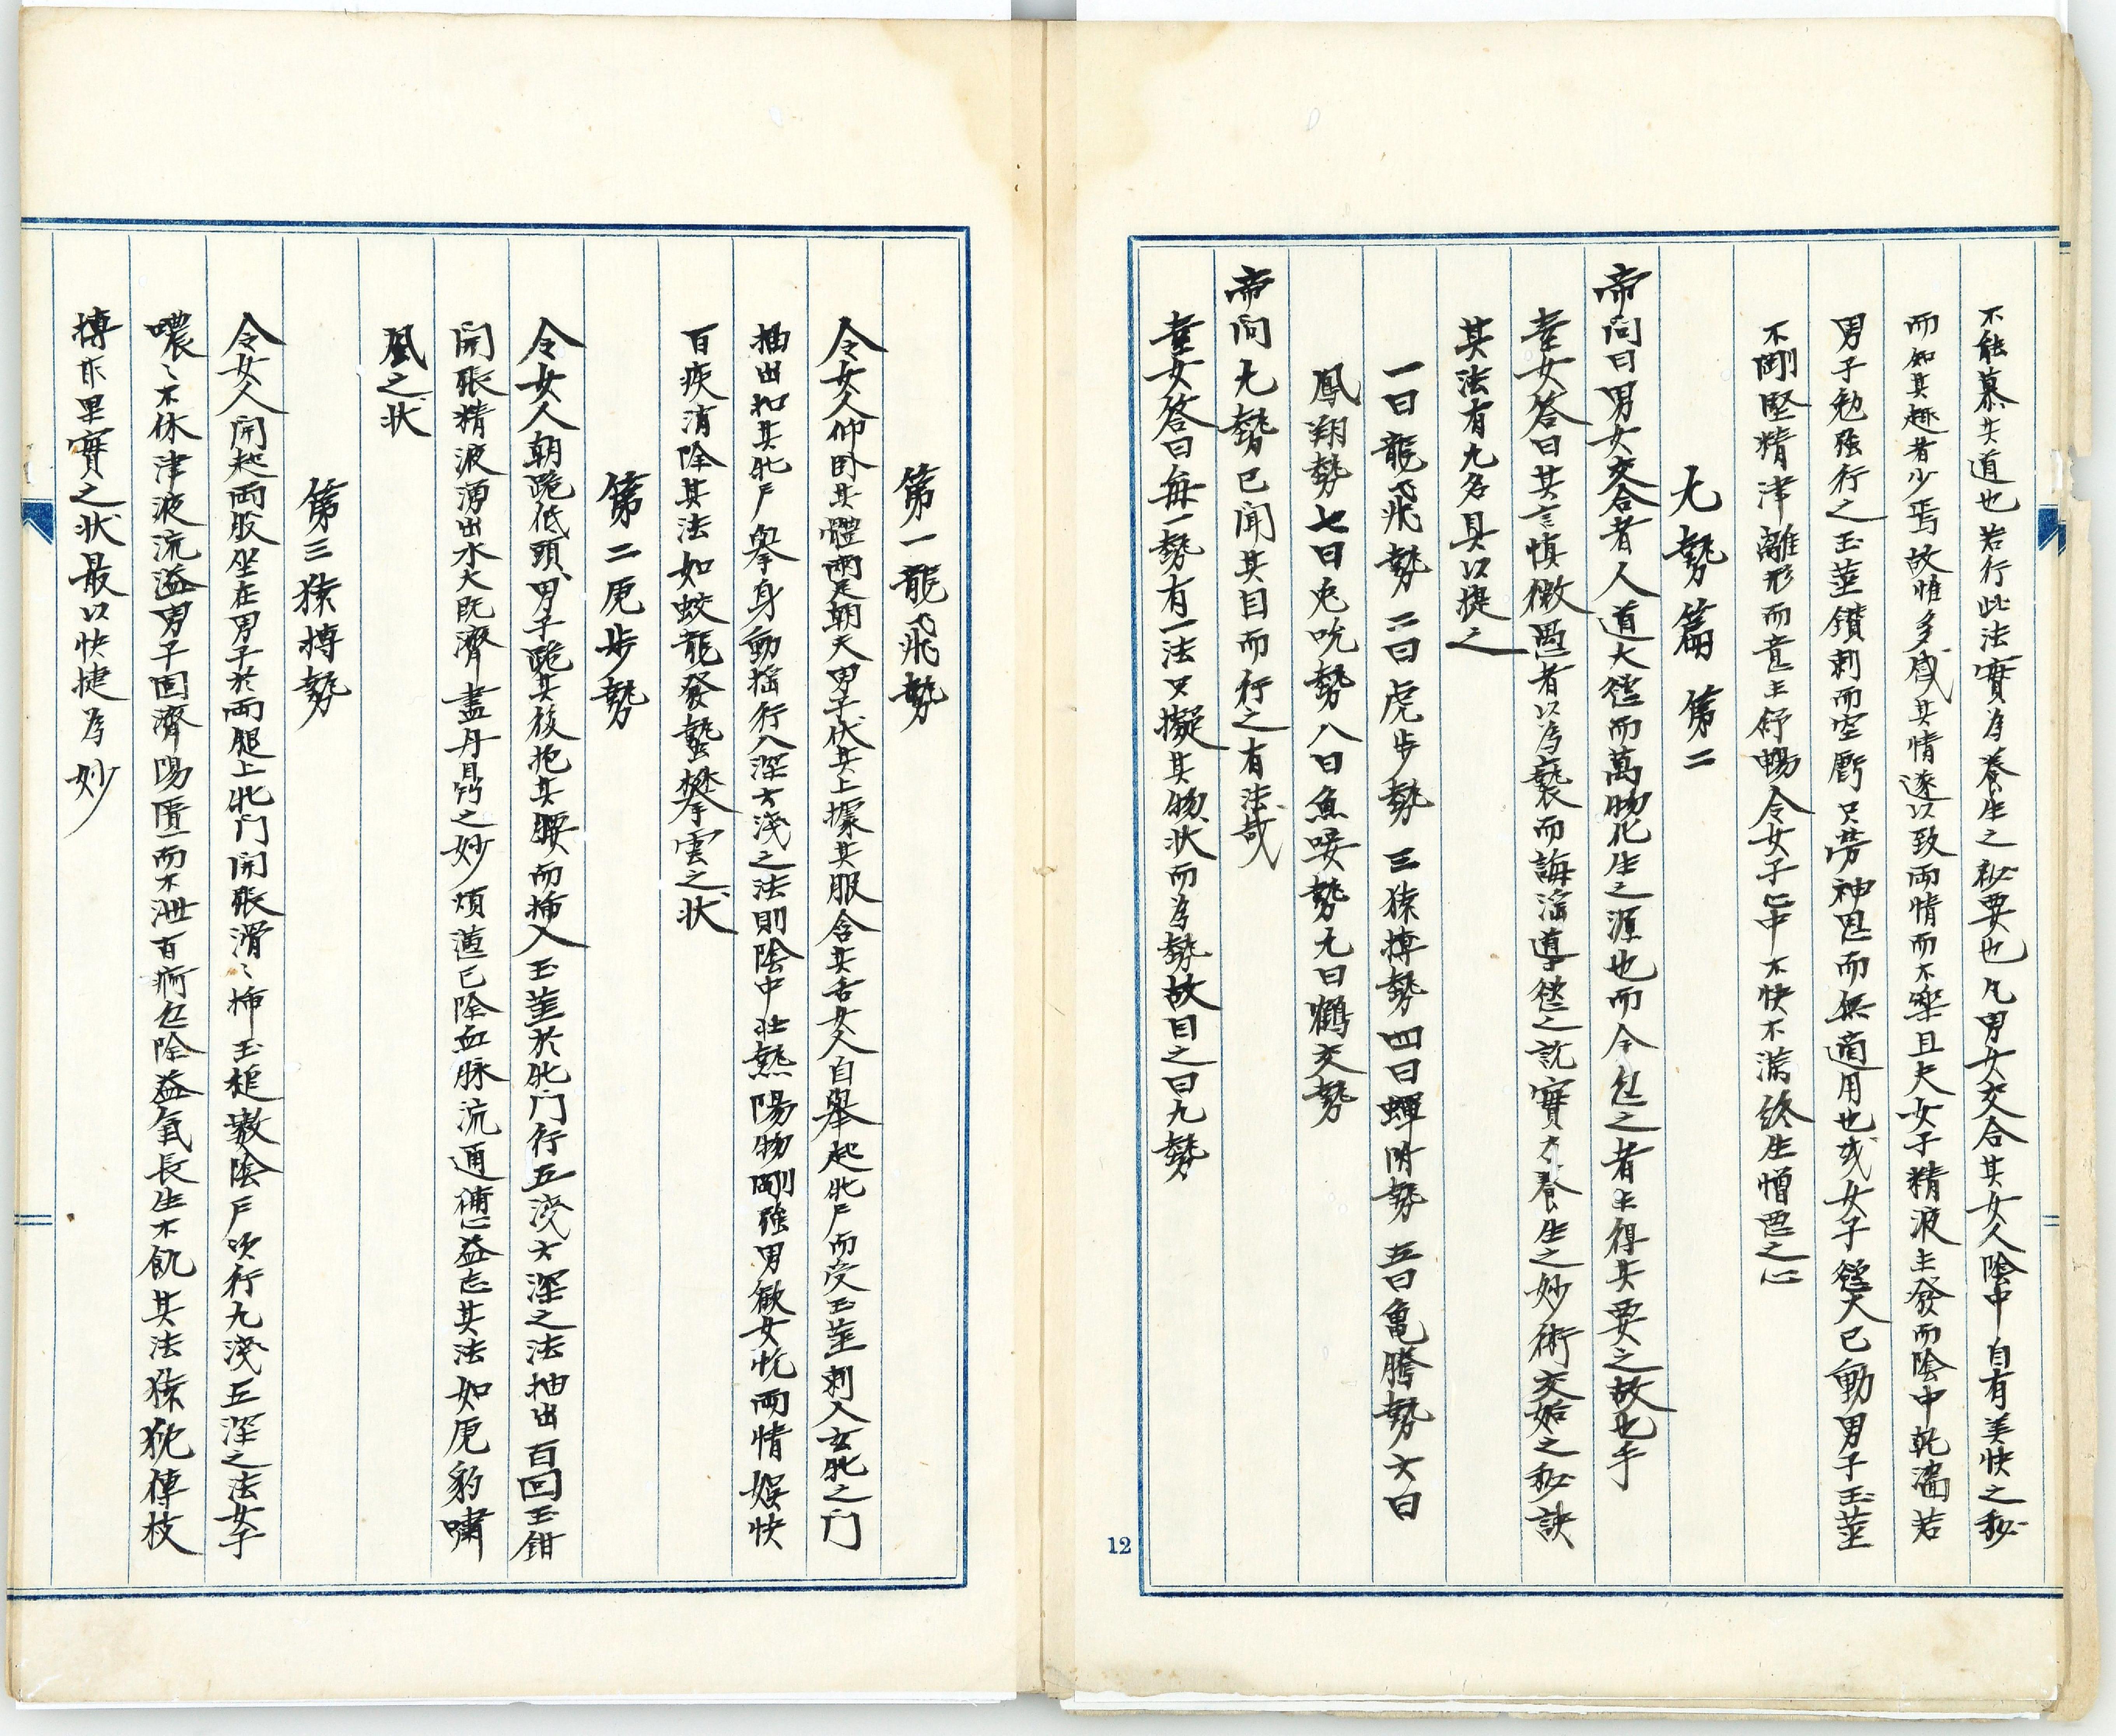 不能慕其道也若行此法實為養生之秘要也凡男女交合其女人陰中自有美快之秘
而知其趣者少焉故惟多咸其情遂以致両情而不樂且夫女子精液未發而陰中乾濇若
男子勉强行之玉莖鑽刺而空虧只勞神思而無適用也或女子慾大已動男子玉莖
不剛堅精津離形而意未舒暢令女子心中不快不滿終生憎惡之心
九勢篇 第二
帝問曰男女交合者人道大慾而萬物化生之源也而今包之者未得其要之故也乎
素女答曰其言慎微愚者以為褻而誨滛導慾之説實大養生之妙術交姤之秘訣
其法有九名具以捷之
一曰龍飛勢二曰虎步勢三猿搏勢四曰蟬附勢五曰亀騰勢六曰
鳳翔勢七曰兎吮勢八曰魚唼勢九曰鶴交勢
帝問九勢已聞其目而行之有法哉
素女答曰每一勢有一法只擬其物状而為勢故目之曰九勢
12
第一龍飛勢
令女人仰卧其體兩足朝天男子伏其上據其服含其舌女人自舉起牝戸而受玉莖刺入玄牝之门
抽出扣其牝戸舉身動揺行八深六淺之法則陰中壮熱陽物剛强男歓女忱両情娯快
百疾消除其法如蛟龍發蟄攀雲之状
第二虎步勢
令女人朝跪低頭男子跪其後抱其腰而挿入玉莖於牝门行五淺六深之法抽出百回玉鉗
開張精液湧出水大既濟盡丹鼎之妙煩懣已除血脉流通補心益志其法如虎豹嘯
風之状
第三猿搏勢
令女人開起両股坐在男子於両腿上牝门開張滑〻挿玉槌敲陰戸次行九淺五深之法女子
噥〻不休津液流溢男子固濟陽匱而不泄百痾包除益氣長生不飢其法猿狖傳枝
搏取果實之状最以快捷為妙